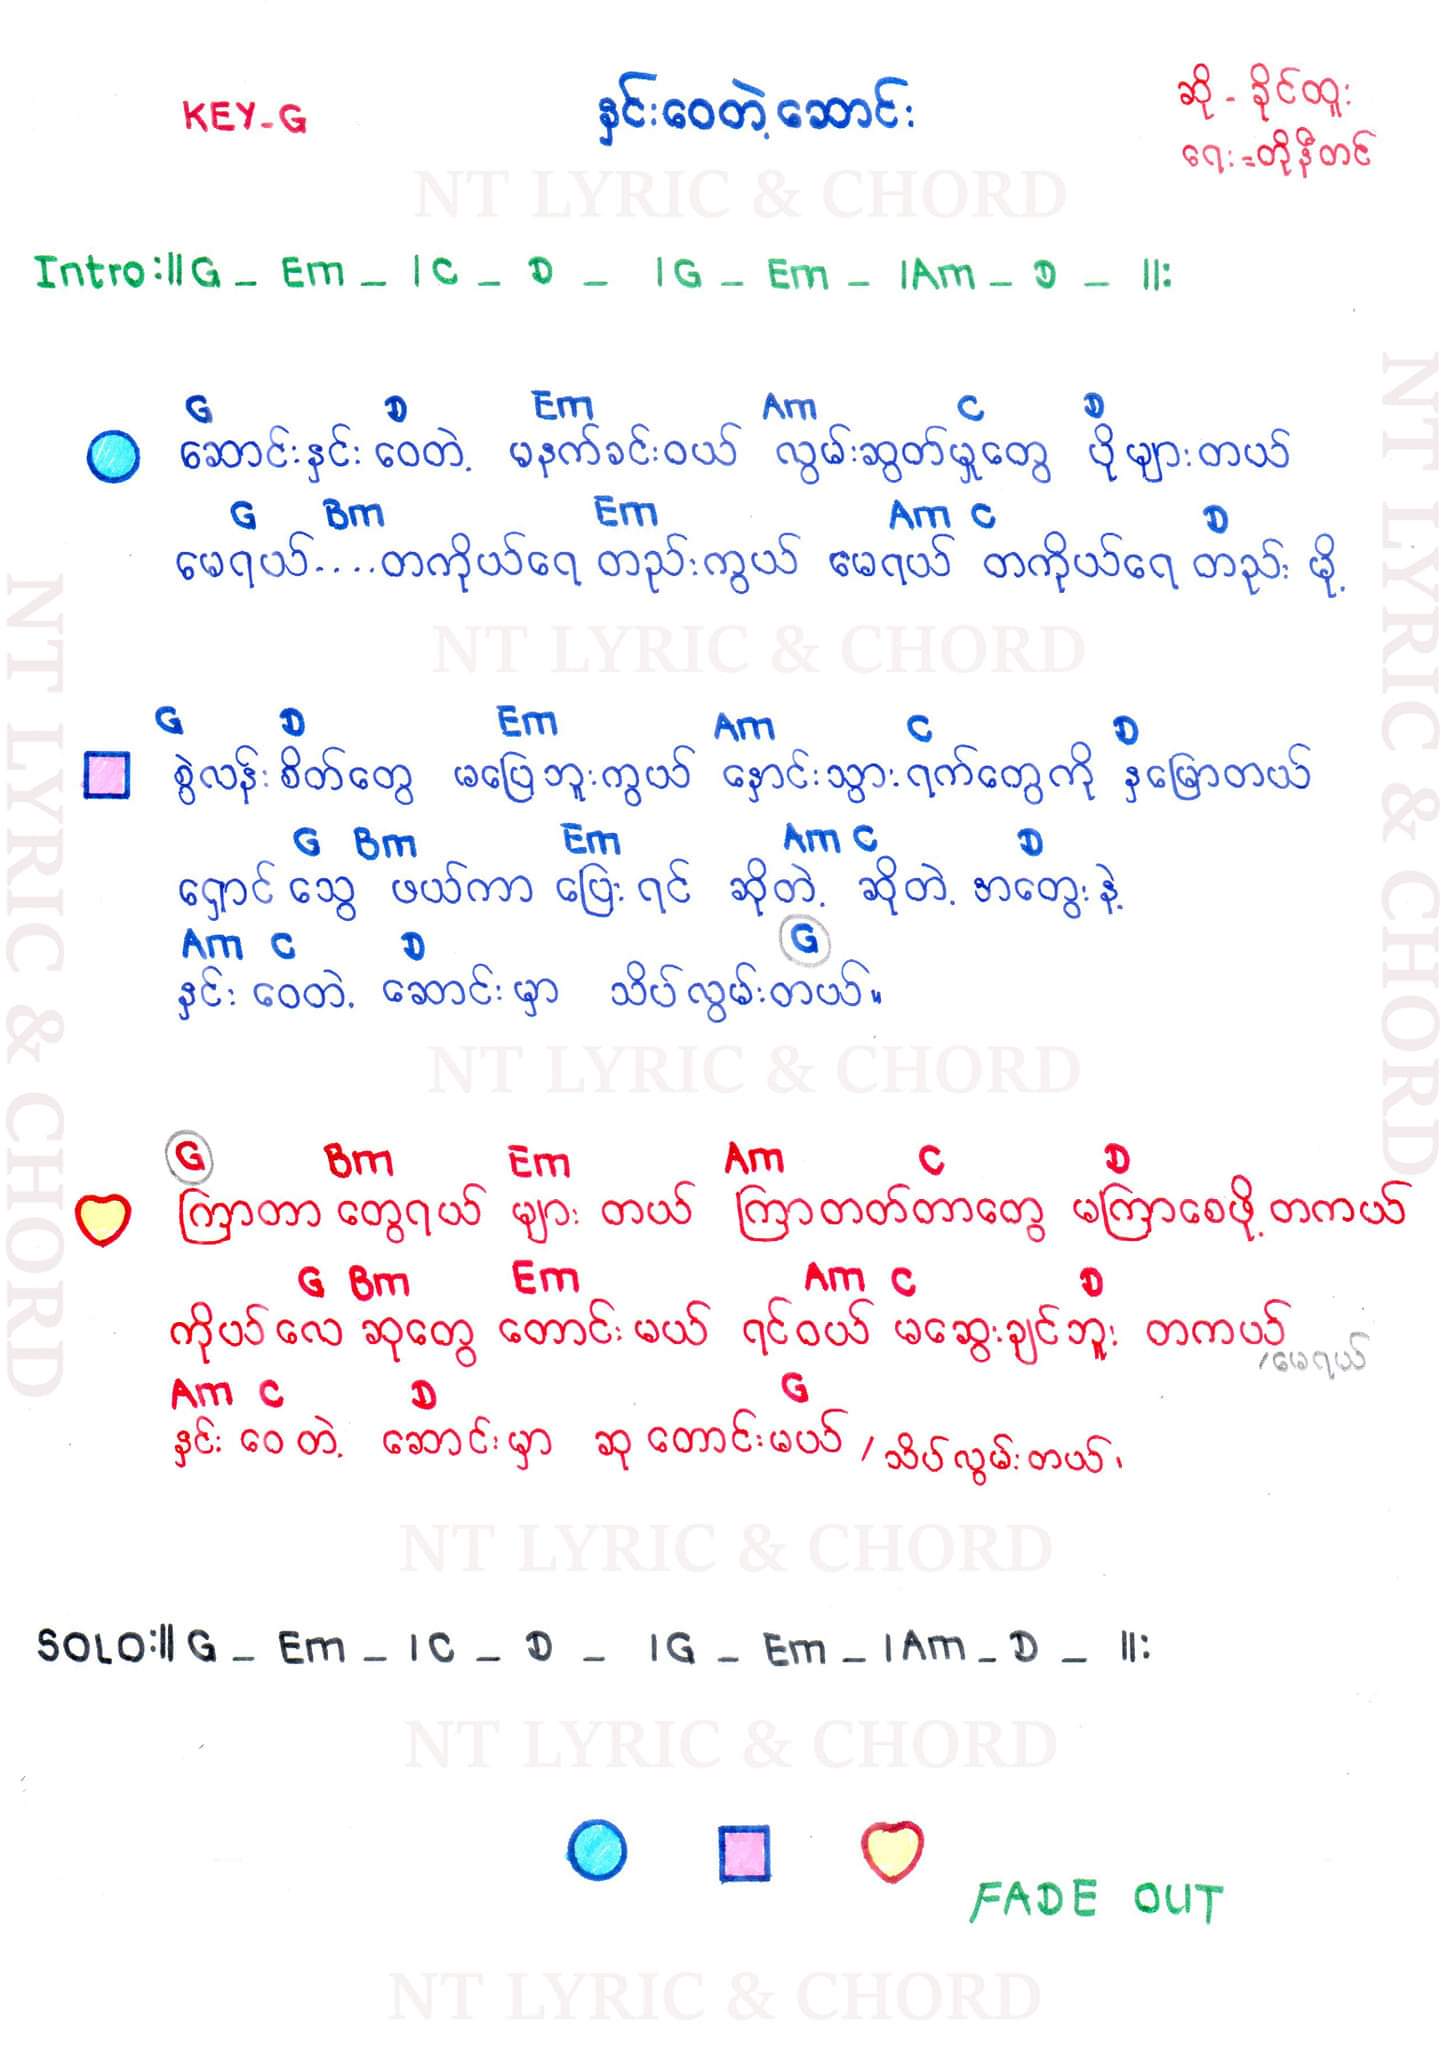 KEY-G
နှင်းဝေတဲ့ဆောင်း
ဆို - ခိုင်ထူး
ရေး = တိုနီတင်
NT LYRIC & CHORD
Intro:||G _ Em _ | C _ D _ | G _ Em _ |Am _ D _ ||:
G D Em Am C D
ဆောင်းနှင်း ဝေတဲ့ မနက်ခင်းဝယ် လွမ်းဆွတ်မှုတွေ ပိုများတယ်
G Bm Em Am C D
မေရယ်....တကိုယ်ရေ တည်းကွယ် မေရယ် တကိုယ်ရေ တည်း မို့
NT LYRIC & CHORD
G D Em Am C D
စွဲလန်းစိတ်တွေ မပြေဘူးကွယ် နှောင်းသွားရက်တွေကို နှမြောတယ်
G Bm Em Am C D
ရှောင် သွေ ဖယ်ကာ ပြေးရင် ဆိုတဲ့ ဆိုတဲ့ အတွေးနဲ့
Am C D G
နှင်း ဝေတဲ့ ဆောင်းမှာ သိပ်လွမ်းတယ်။
NT LYRIC & CHORD
G Bm Em Am C D
ကြာတာ တွေရယ် များ တယ် ကြာတတ်တာတွေ မကြာစေဖို့ တကယ်
G Bm Em Am C D
ကိုယ်လေ ဆုတွေ တောင်းမယ် ရင်ဝယ် မဆွေးချင်ဘူး တကယ်
/မေရယ်
Am C D G
နှင်း ဝေ တဲ့ ဆောင်းမှာ ဆု တောင်းမယ် / သိပ်လွမ်းတယ်၊
NT LYRIC & CHORD
SOLO:||G _ Em _ | C _ D _ | G _ Em _ | Am _ D _ ||:
NT LYRIC & CHORD
FADE OUT
NT LYRIC & CHORD
NT LYRIC & CHORD
NT LYRIC & CHORD